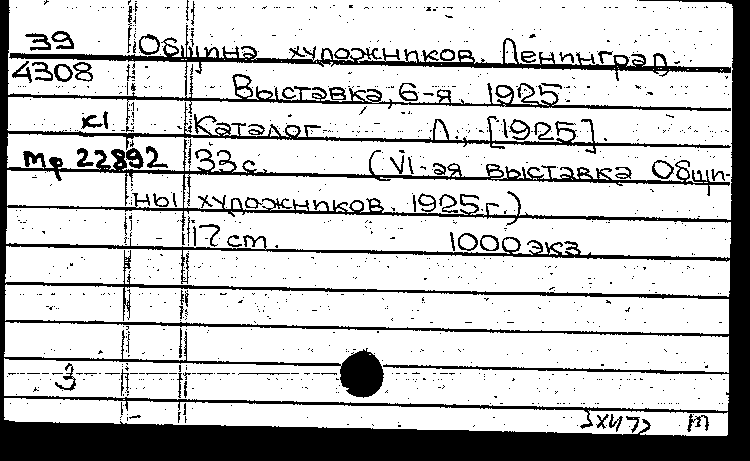 39 Община художников. Ленинград.
4308 Выставка, 6-я. 1925.
XI Каталог Л., [1925].
Мр 22892 33 с. (VI-ая выставка Общи-
ны художников. 1925 г.)
17 см. 1000 экз.
3
3XII72 т